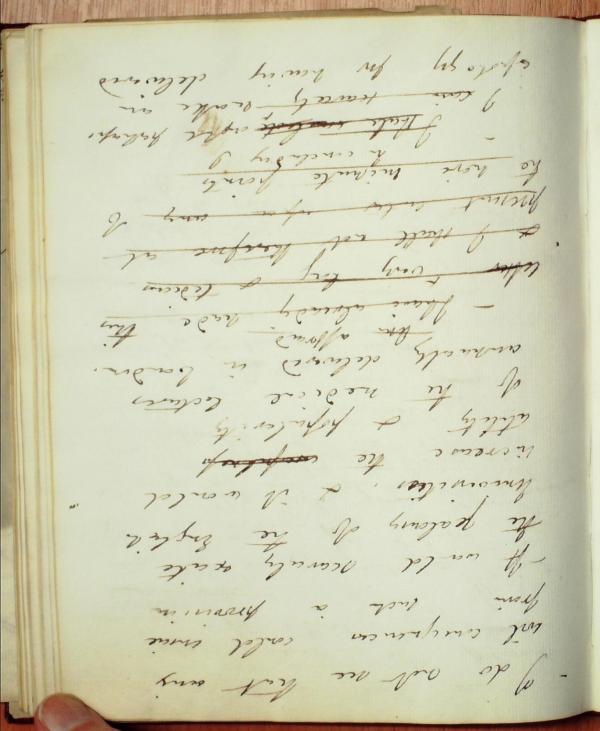 - I do not see that any
evil consequences could ensue
from such a provision
- It would scarcely excite
the jealousy of the English
Universities, & it would
increase the
utility & popularity
of the medical lectures
annually delivered in London.
afraid
- I have already made this
letter very long & tedious
& I shall not therefore at
present enter upon any of
the more minute points
In concluding I
- I shall perhaps
I can scarcely make an
apology for having delivered